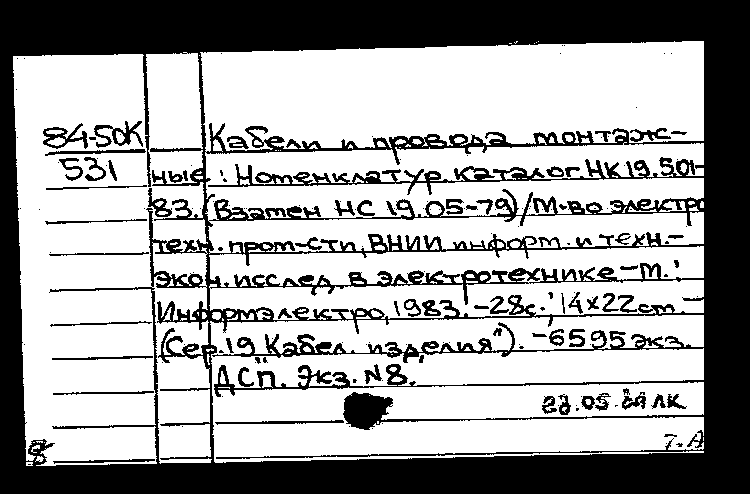 84-50К Кабели и провода монтаж-
531 ные : Номенклатур. каталог. НК 19.5.01-
83. (Взамен НС 19.05-79) / М-во электро
техн. пром-сти, ВНИИ информ. и техн.-
экон. исслед. в электротехнике. - М. :
Информэлектро, 1983. - 28с.; 14×22 см. -
(Сер. 19 "Кабел. изделия"). - 6595 экз.
ДСП. Экз. №8.
ЛК
7. А
8